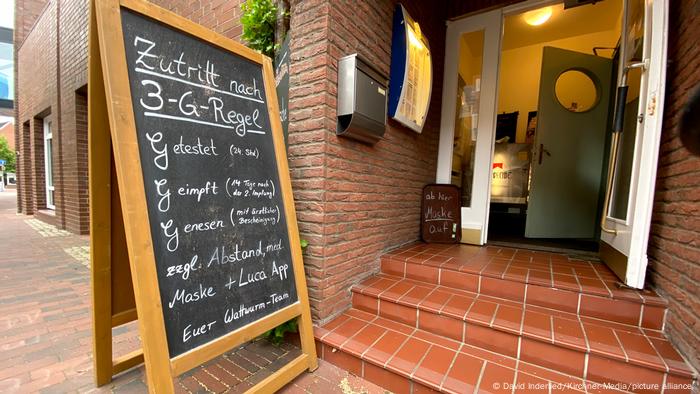 Zutritt nach
3-G-Regel
Getestet (24. Std)
Geimpft (14 Tage nach
der 2. Impfung)
Genesen (mit ärztlicher
Bescheinigung)
zzgl. Abstand, med.
Maske + Luca App
Euer Wattwurm-Team
ab hier
Maske
auf!
© David Inderlied/Kirchner-Media/picture alliance